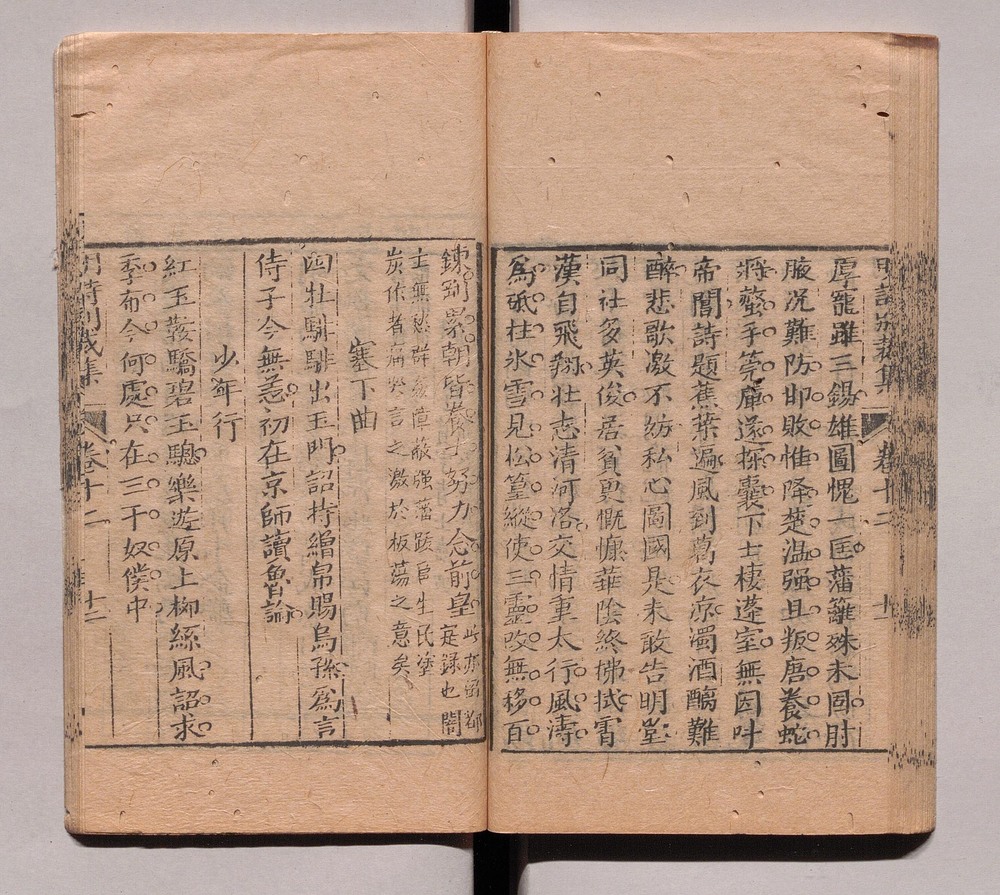 明詩別裁集 卷十二 十一
厚寵雖三錫雄圖愧一匡藩籬殊未固肘
腋況難防卻敗惟降楚温强且叛唐養蛇
將螫手箢庫遂探囊下士棲蓬室無因叶
帝閽詩題蕉葉遍風到葛衣凉濁酒醨難
醉悲歌激不妨私心圖國是未敢告明堂
同社多英俊居貧更慨慷華陰終拂拭霄
漢自飛翔壯志清河洛交情重太行風濤
為砥柱氷雪見松篁縱使三靈改無移百
鍊剛累朝皆養士努力念前皇
此亦留都
疑錄也闇
主無愁群奸草竊强藩跋扈生民塗
炭作者痛哭言之激於板蕩之意矣
塞下曲
四牡騑騑出玉門詔持繒帛賜烏孫為言
侍子今無恙初在京師讀魯論
少年行
紅玉鞍驕碧玉驄樂遊原上柳絲風詔求
季布今何處只在三千奴僕中
明詩別裁集 卷十二 十二